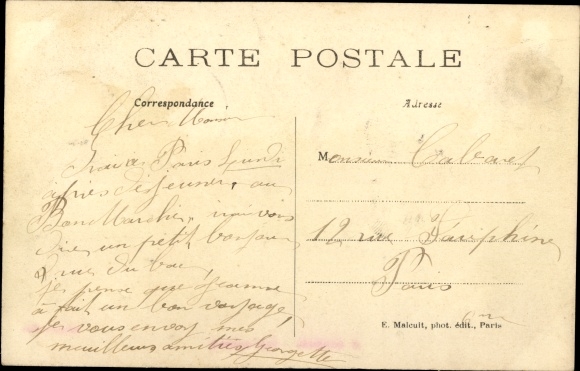 CARTE POSTALE
Correspondance
Adresse
Cher
Irai à Paris Lundi
après déjeuner, au
Bon Marché, irai vous
dire un petit bonjour
rue du bac
je pense que Jeanne
a fait un bon voyage,
je vous envoy mes
meuilleurs amitiés Georgette
Monsieur Cabaret
12 rue Dauphine
Paris
6me
E. Malcuit, phot. édit., Paris